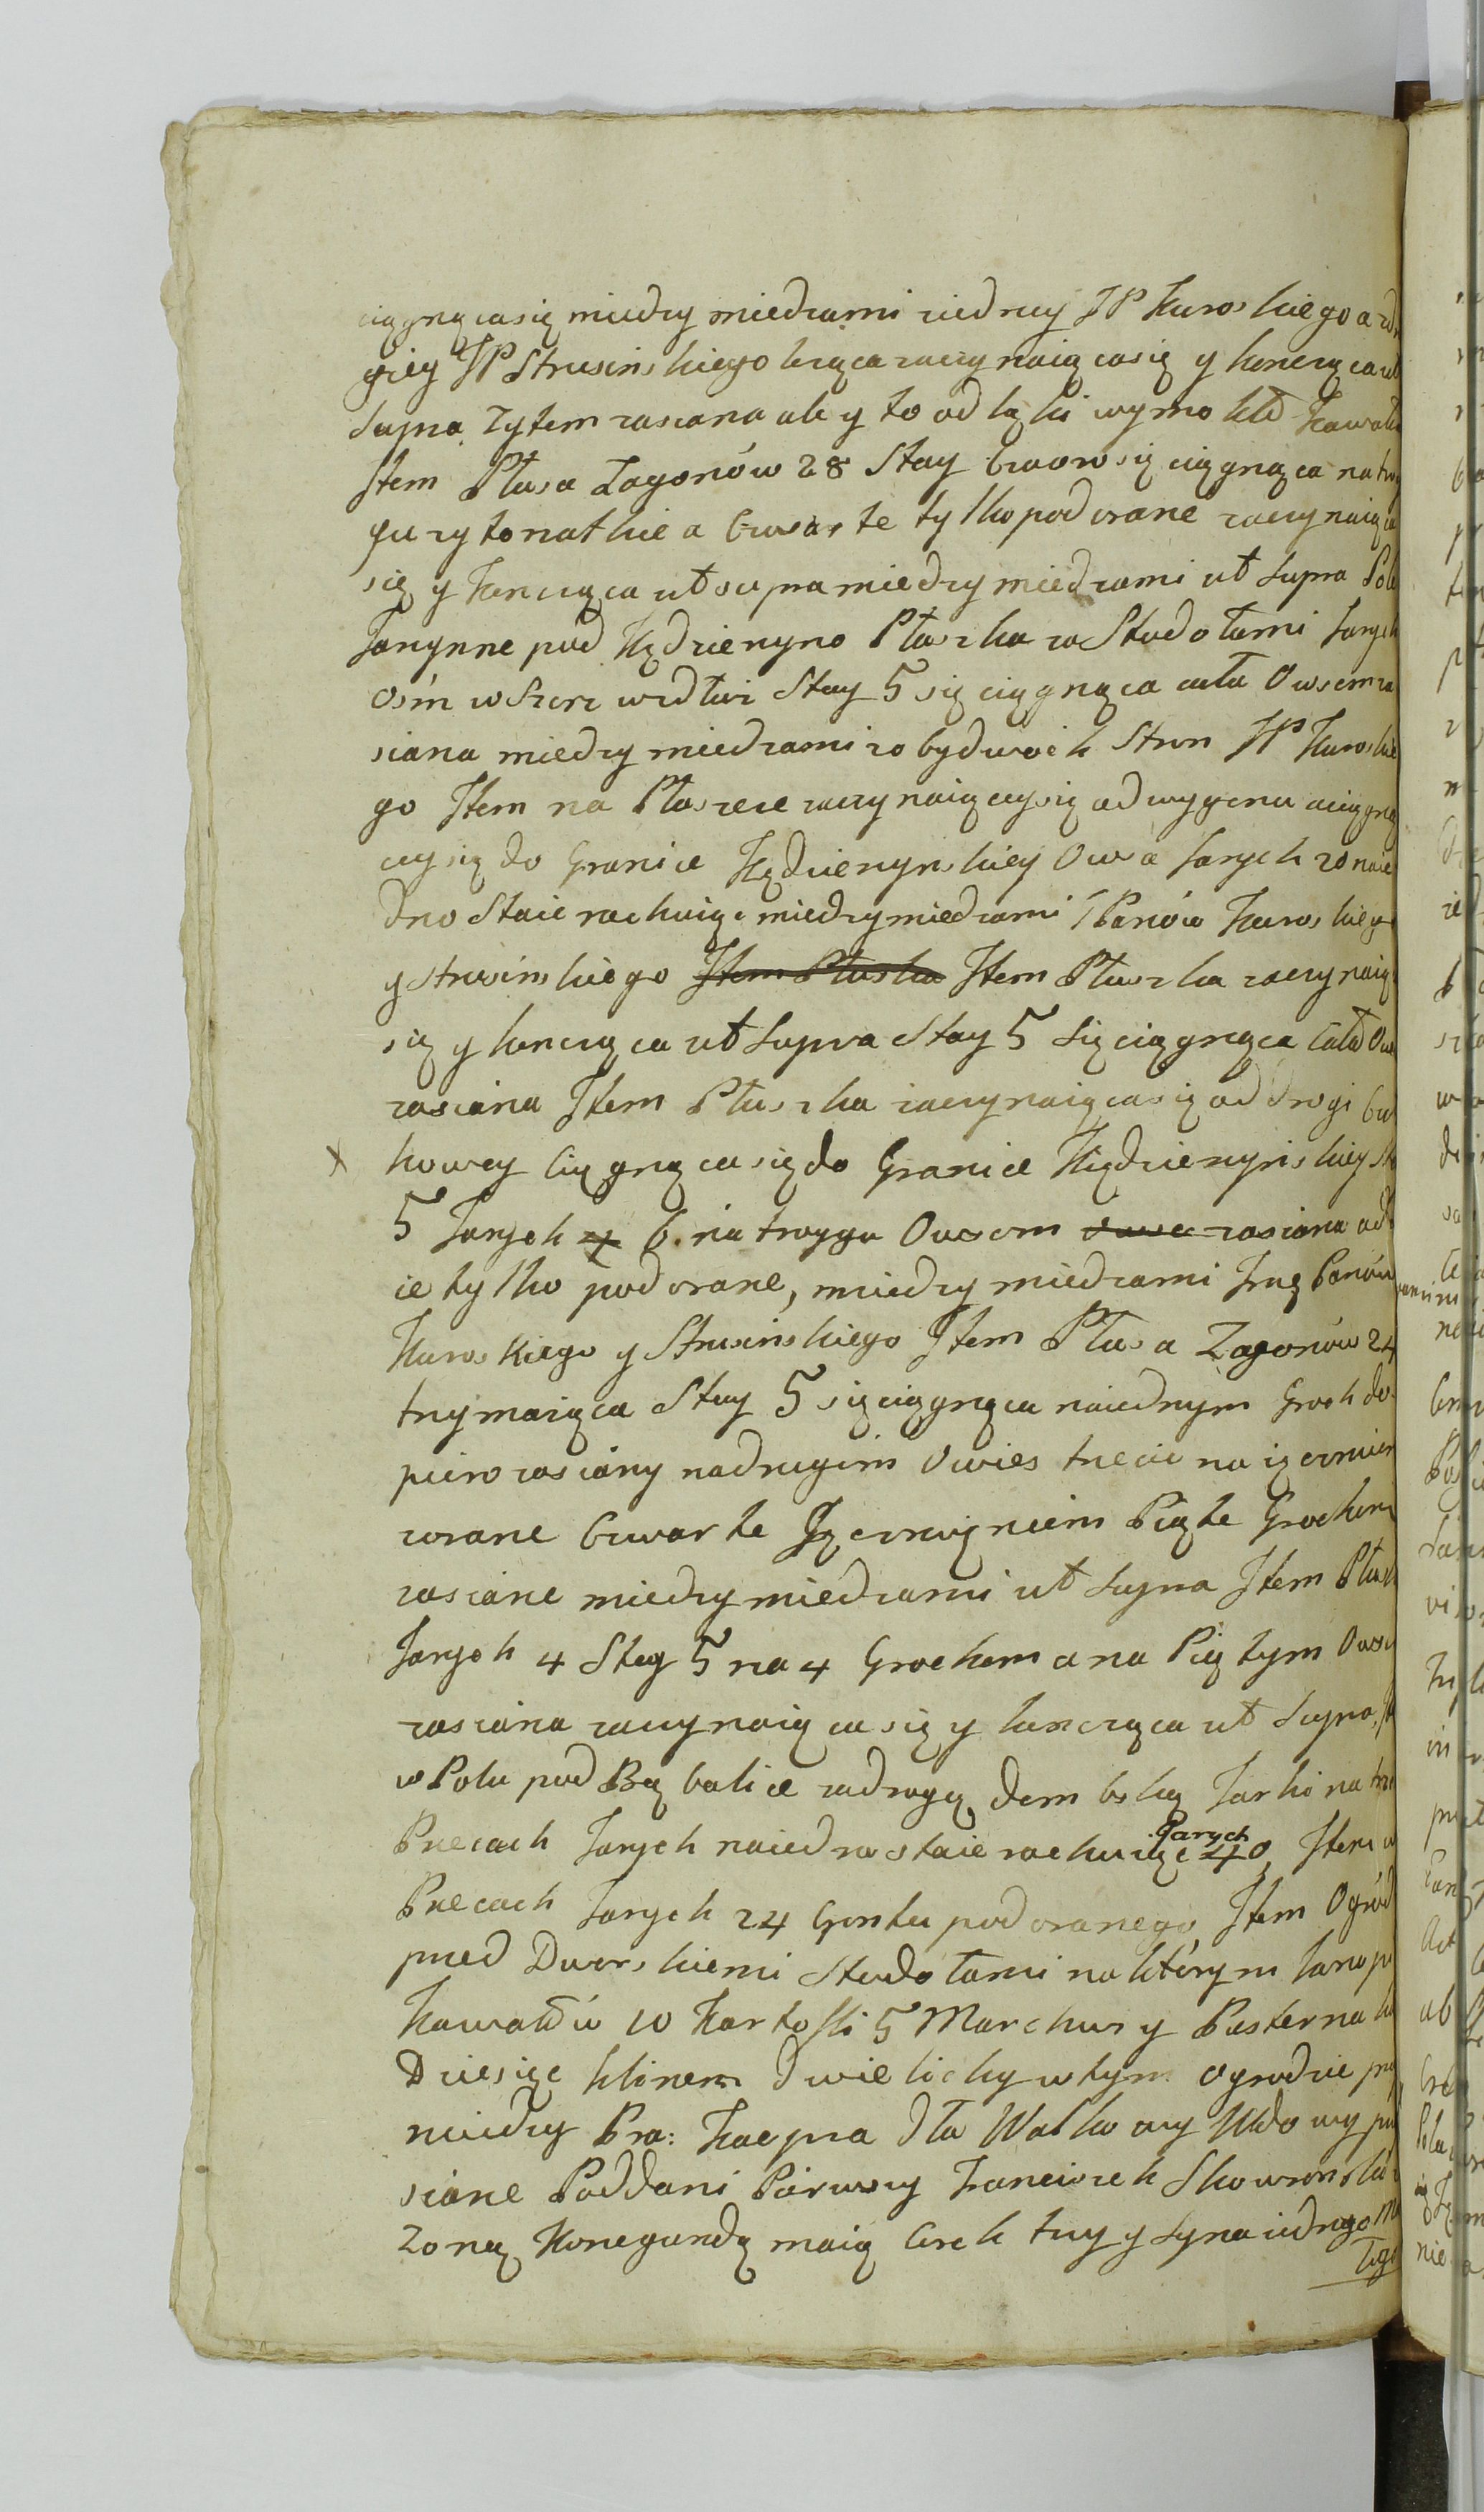 ciągnącasię między miedzami iednej JP Kuroskiego a dr
giey JP Strusinskiego leżąca zaczynaiącasię y koncząca ut
Supra Zytem zasiana ale y to od łąki wymokło Kawałk
Item Płosa Zagonów 28 Stay Czworo się ciągnąca na trz
gu rżysko natkie a Czwarte tylko podorane zaczynaiąca
się y Kencząca ut supra między miedzami ut Supra Pole
Jarynne pod Kędzierzyno Płoszka za Stodołami Jarych
Osm wszerz wzdłuż Stay 5 się ciągnąca cała Owsem za
siana między miedzami z obydwoch Stron JP Kuroskie
go Item na Płoszce zaczynaiącey się od wygonu a ciągną
cey się do Granice Kędzierzynskiey Owsa Jarych 20 naie
dno Staie rachuiąc między miedzami JPanów Kuroskiego
y Strusinskiego Item Płoska Item Płoszka zaczynaią
się y koncząca ut Supra Stay 5 się ciągnąca cała Ow
zasiana Item Płoszka zaczynaiącasię od drogi
x kowey Ciągnącasię do Granice Kiędzierzynskiey St
5 Jarych 4 6. na troygu Owsem zasiana a d
ie tylko podorane, między miedzami Panów
Kuroskiego y Strusinskiego Item Płosa Zagonów 24
trzymaiąca Stay 5 się ciągnąca naiednym Groch do-
piero zasiany nadrugim Owies trzecie na ięczmien
zorane Czwarte Ięczmieniem Piąte Grochem
zasiane między miedzami ut Supra Item Płosk
Jarych 4 Stay 5 na 4 Grochem a na Piątym Owse
zasiana zaczynaiąca się y koncząca ut Supra, It
w Polu pod Bą balice zadrogą Dembską Jarki na trze
Przecach Jarych naiedno staie rachuiąc Parych 40, Item w
Przecach Jarych 24 Gontu podoranego, Item Ogród
przed Dworskiemi Stodołami na którym Jano po
Kawałów 10 Kartofli 5 Marchwi y Pasternaku
Dziesięć klinem Dwie lichy w tym ogrodzie po
miedzy Pra: Kacpra Dla Walkowy Wdowy po
siane Poddani Pierwszy Franciszek Skowronski
Zoną Konegundą maią Corek trzy y Syna iednego M
Tego